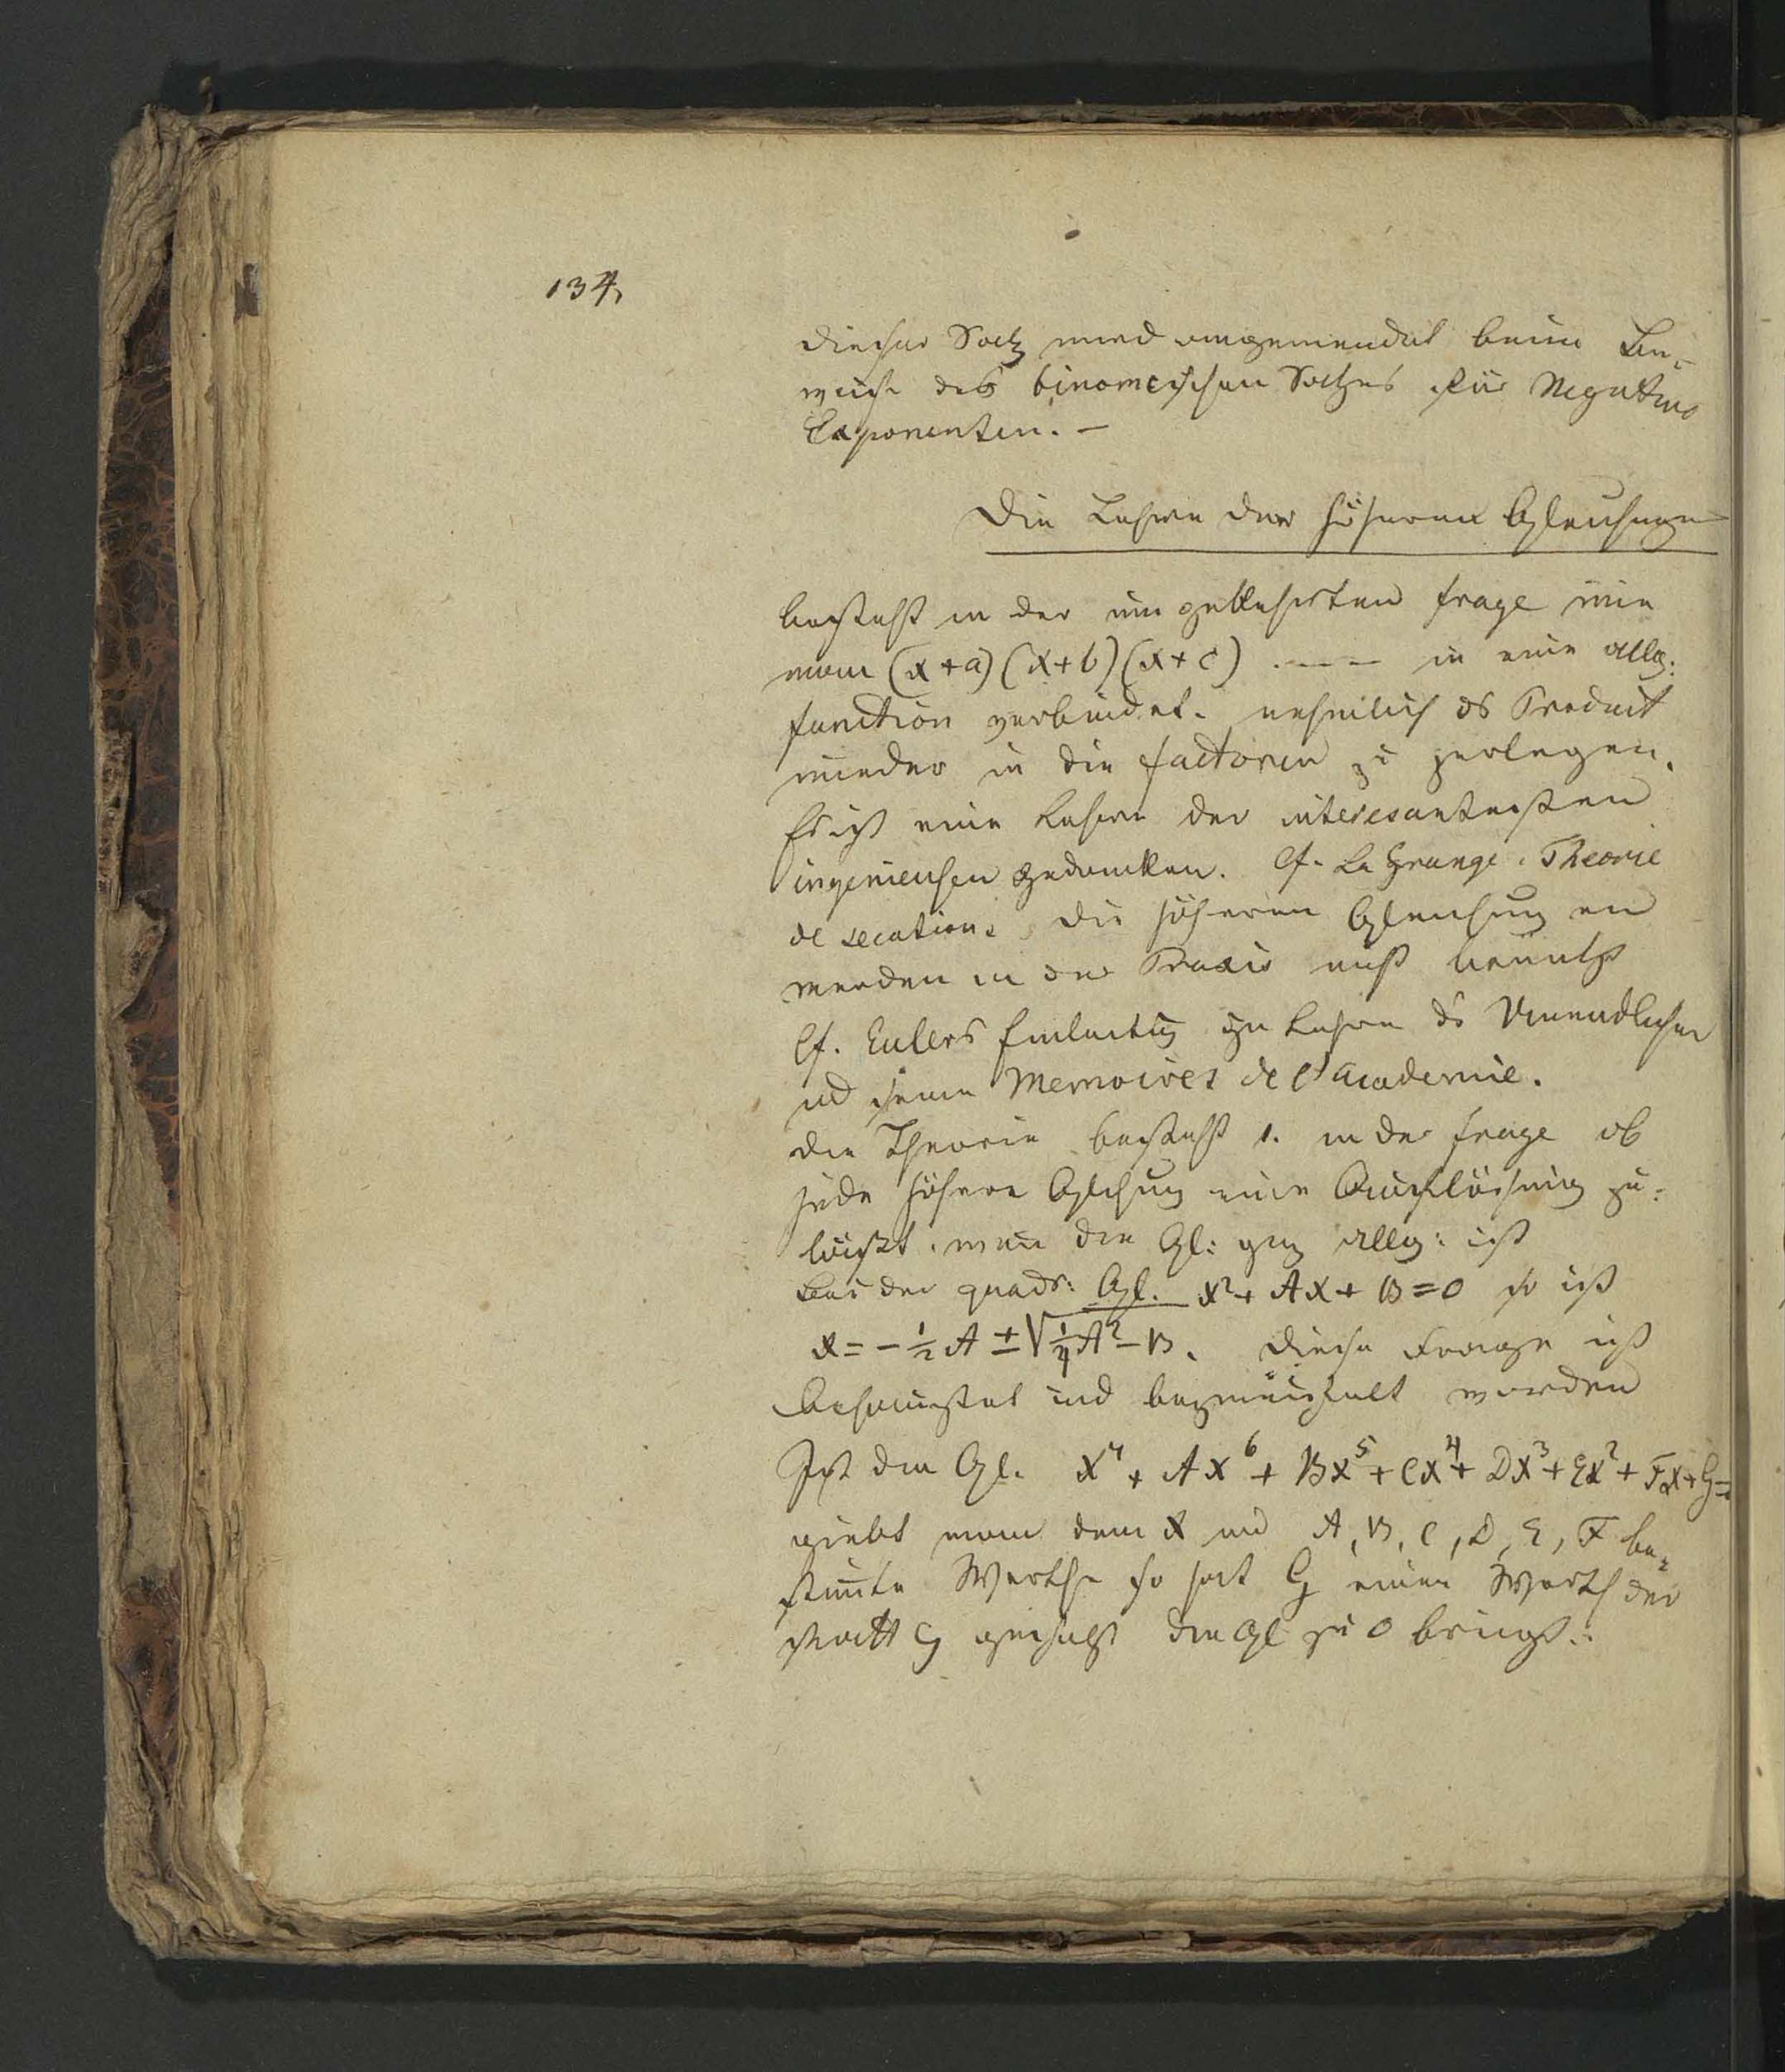 134,
dieser Satz wird angewendet beim Be-
weise des binomischen Satzes für Negative
Exponenten. –
Die Lehre der höheren Gleichungen
besteht in der umgekehrten frage wie
man (x + a) (x + b) (x + c) .––– in eine allg.
function verbindet. nehmlich ds Product
wieder in die factoren zu zerlegen.
Es ist eine Lehre der interesantesten
ingenieusen Gedanken. Cf. La Grange. Theorie
de secations die höheren Gleichung en
werden in der Praxis nicht benutzt
Cf. Eulers Einleitung zu Lehre ds Unendlichen
und seine Memoires de l'academie.
die Theorie besteht 1. in der frage ob
jede höhere Glchung eine Auflösung zu-
läst. wenn die Gl: ganz allg: ist
bei der quadr: Gl. x² + Ax + B = 0 so ist
x = – ½ A ± √¼A² – B. diese Frage ist
behauptet und bezweifelt worden
Ist die Gl. x⁷ + Ax⁶ + Bx⁵ + Cx⁴ + Dx³ + Ex² + Fx + G =
giebt man dem x und A, B, C, D, E, F be-
stimte Werthe so hat G einen Werth der
statt G gesetzt die Gl zu 0 bringt.